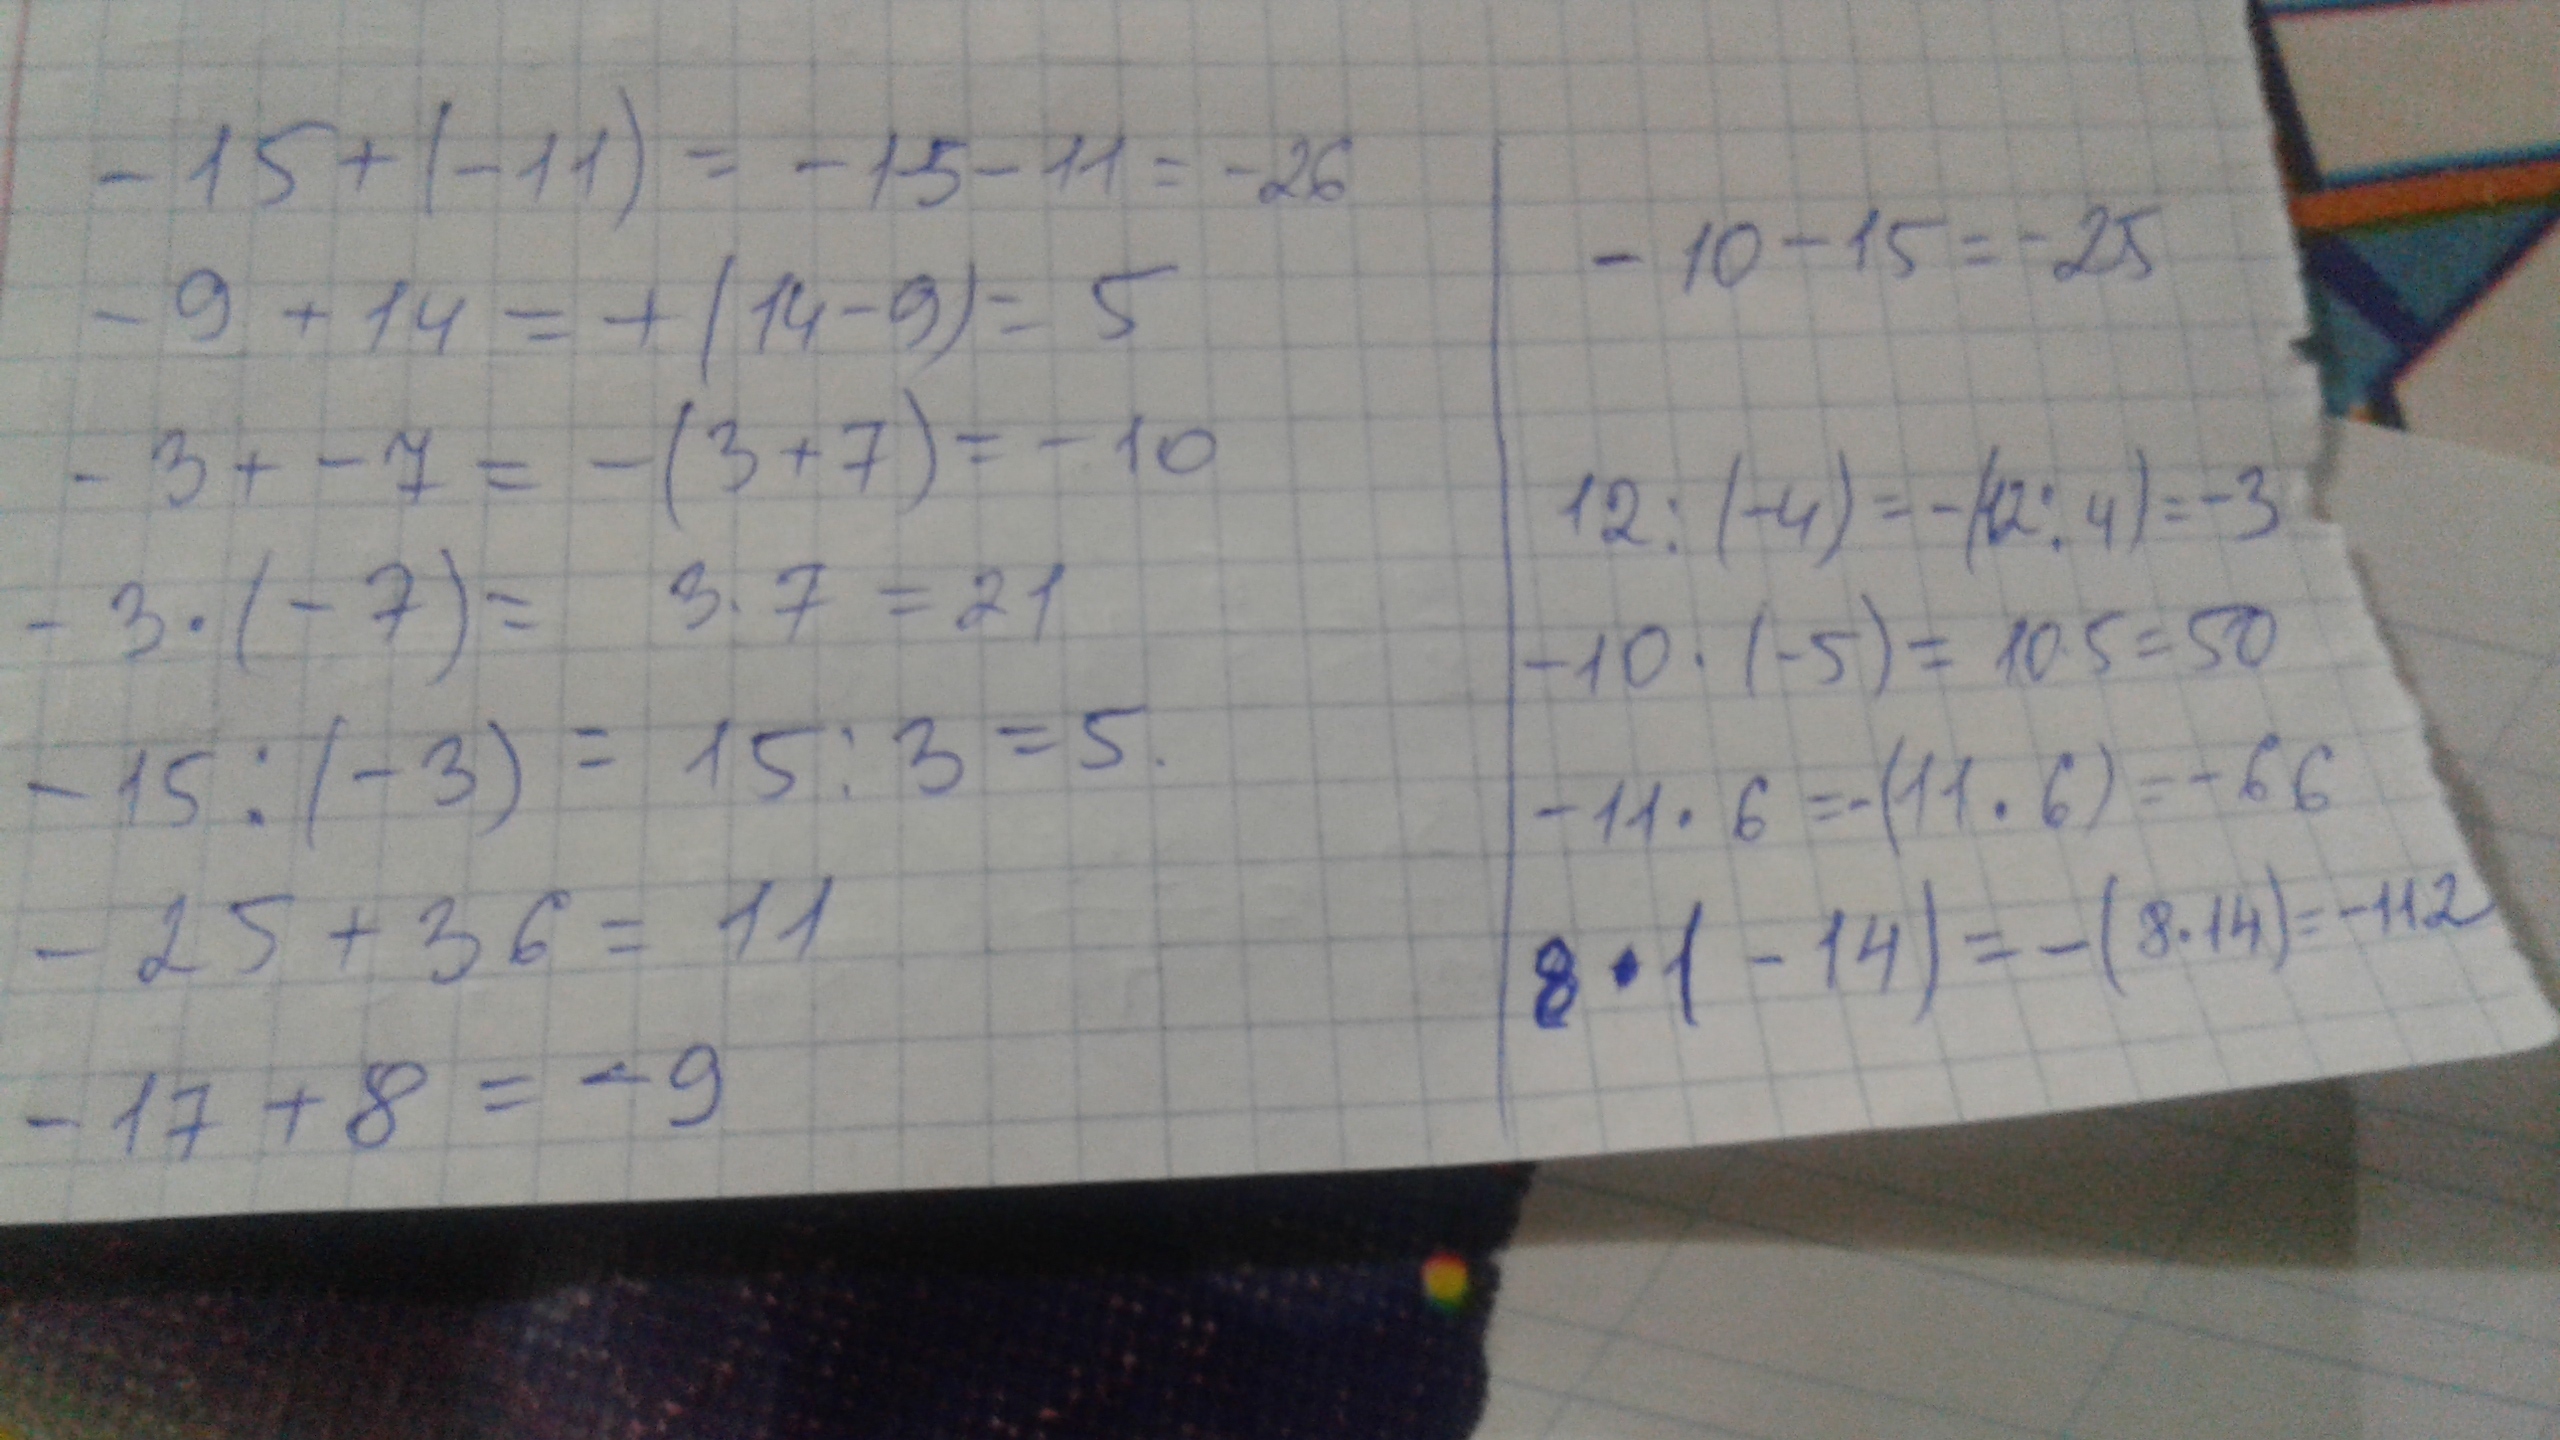 -15+(-11) = -15-11 = -26
-9 + 14 = +(14-9) = 5
-3 + -7 = -(3+7) = -10
-3·(-7) = 3·7 = 21
-15:(-3) = 15:3 = 5.
-25+36 = 11
-17+8 = -9
-10-15 = -25
12:(-4) = -(12:4) = -3
-10·(-5) = 10·5 = 50
-11·6 = -(11·6) = -66
8·(-14) = -(8·14) = -112